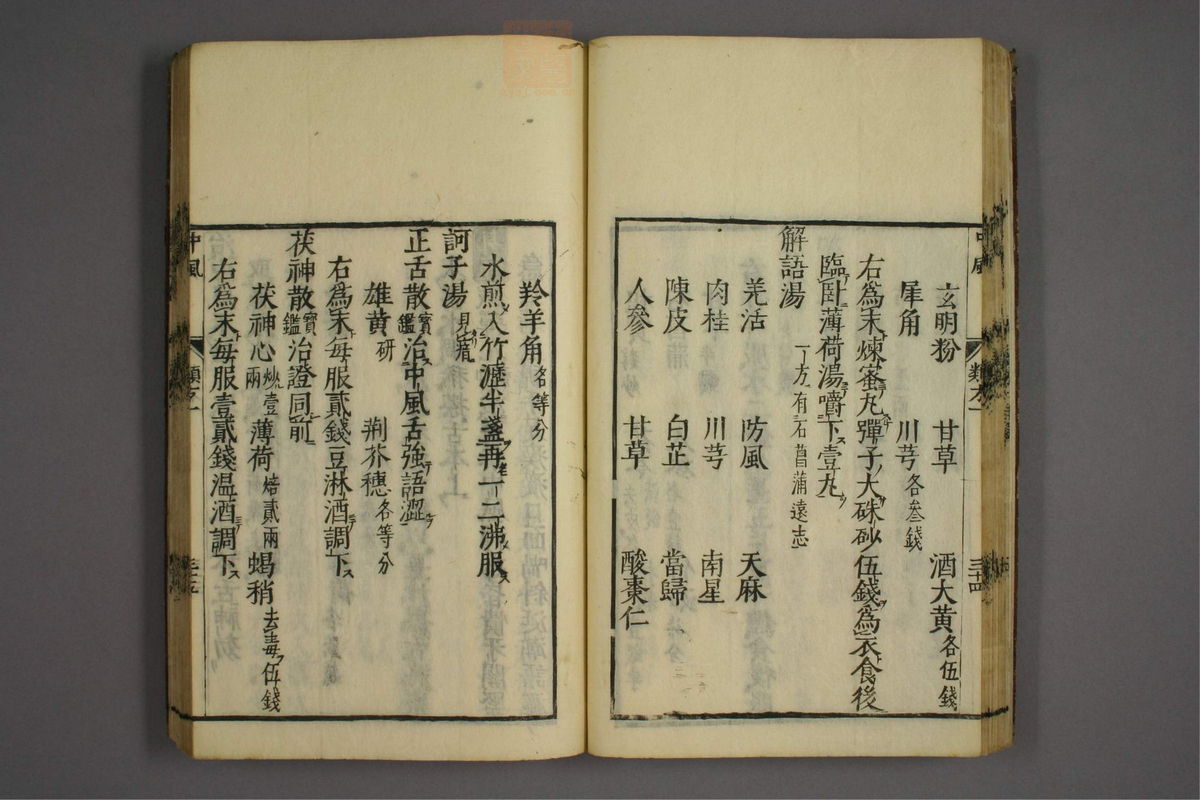 玄明粉 甘草 酒大黃各伍錢
犀角 川芎各叁錢
右爲末煉蜜丸彈子大硃砂伍錢爲衣食後
臨臥薄荷湯嚼下壹丸
解語湯 一方有石菖蒲遠志
羌活 防風 天麻
肉桂 川芎 南星
陳皮 白芷 當歸
人參 甘草 酸棗仁
羚羊角各等分
水煎入竹瀝半盞再一二沸服
訶子湯
正舌散寶鑑治中風舌強語澀
雄黃研 荊芥穗各等分
右爲末每服貳錢豆淋酒調下
茯神散寶鑑治證同前
茯神心炒壹兩 薄荷焙貳兩 蝎稍去毒伍錢
右爲末每服壹貳錢温酒調下
中風 三十四
中風 類之一 三十五